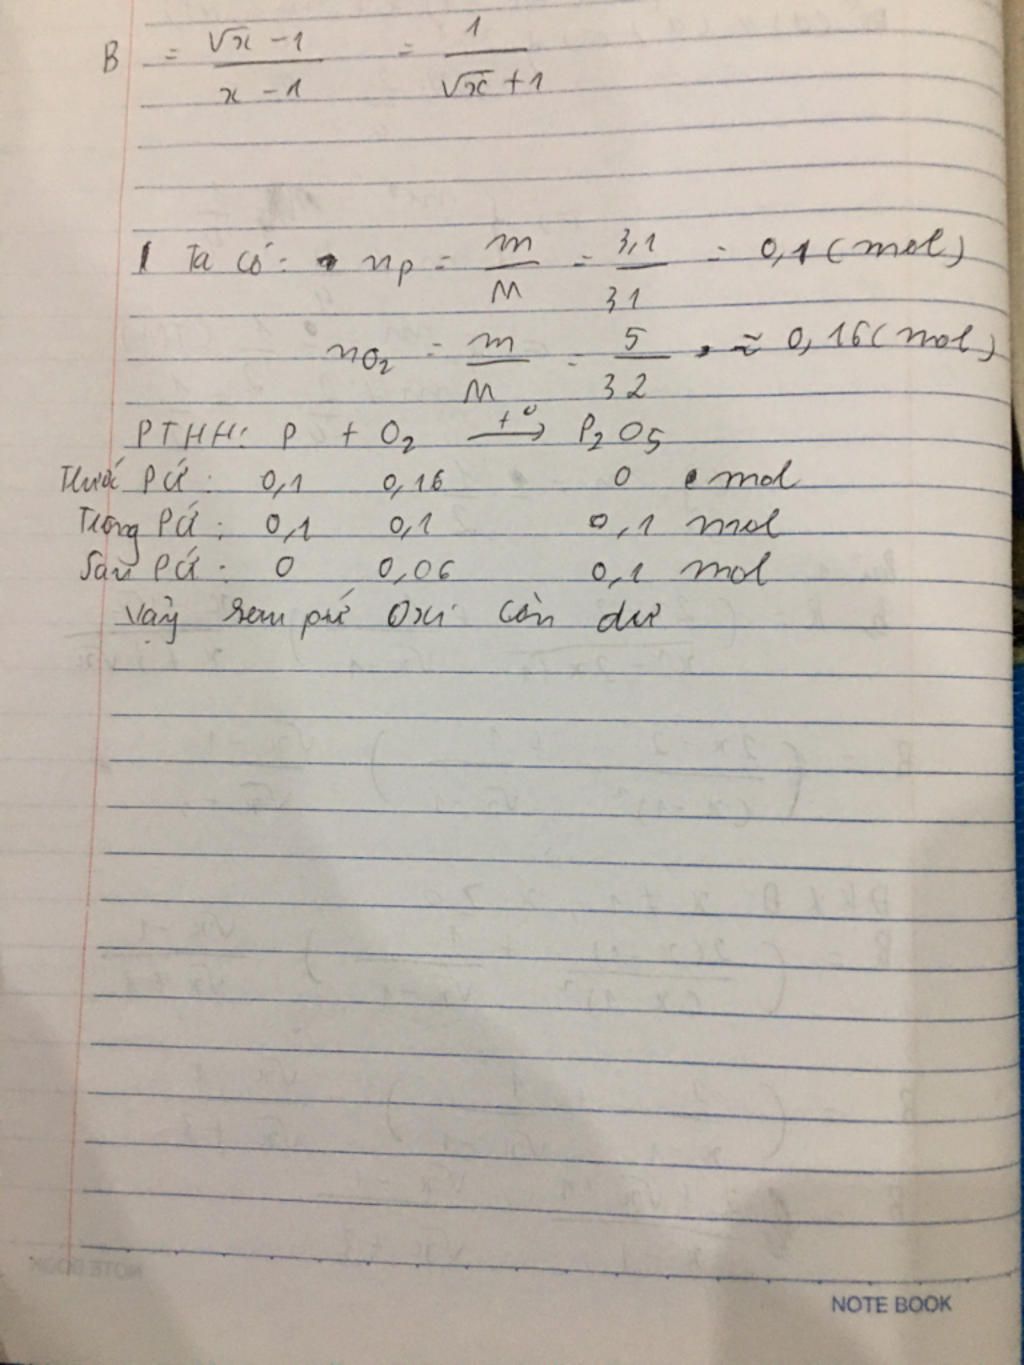 B = √x - 1 / x - 1 = 1 / √x + 1
1 Ta có: nP = m / M = 3,1 / 31 = 0,1 (mol)
nO2 = m / M = 5 / 32 ≈ 0,16 (mol)
PTHH: P + O2 t° → P2O5
Trước PƯ: 0,1 0,16 0 mol
Trong PƯ: 0,1 0,1 0,1 mol
Sau PƯ: 0 0,06 0,1 mol
Vậy sau pứ Oxi còn dư
NOTE BOOK